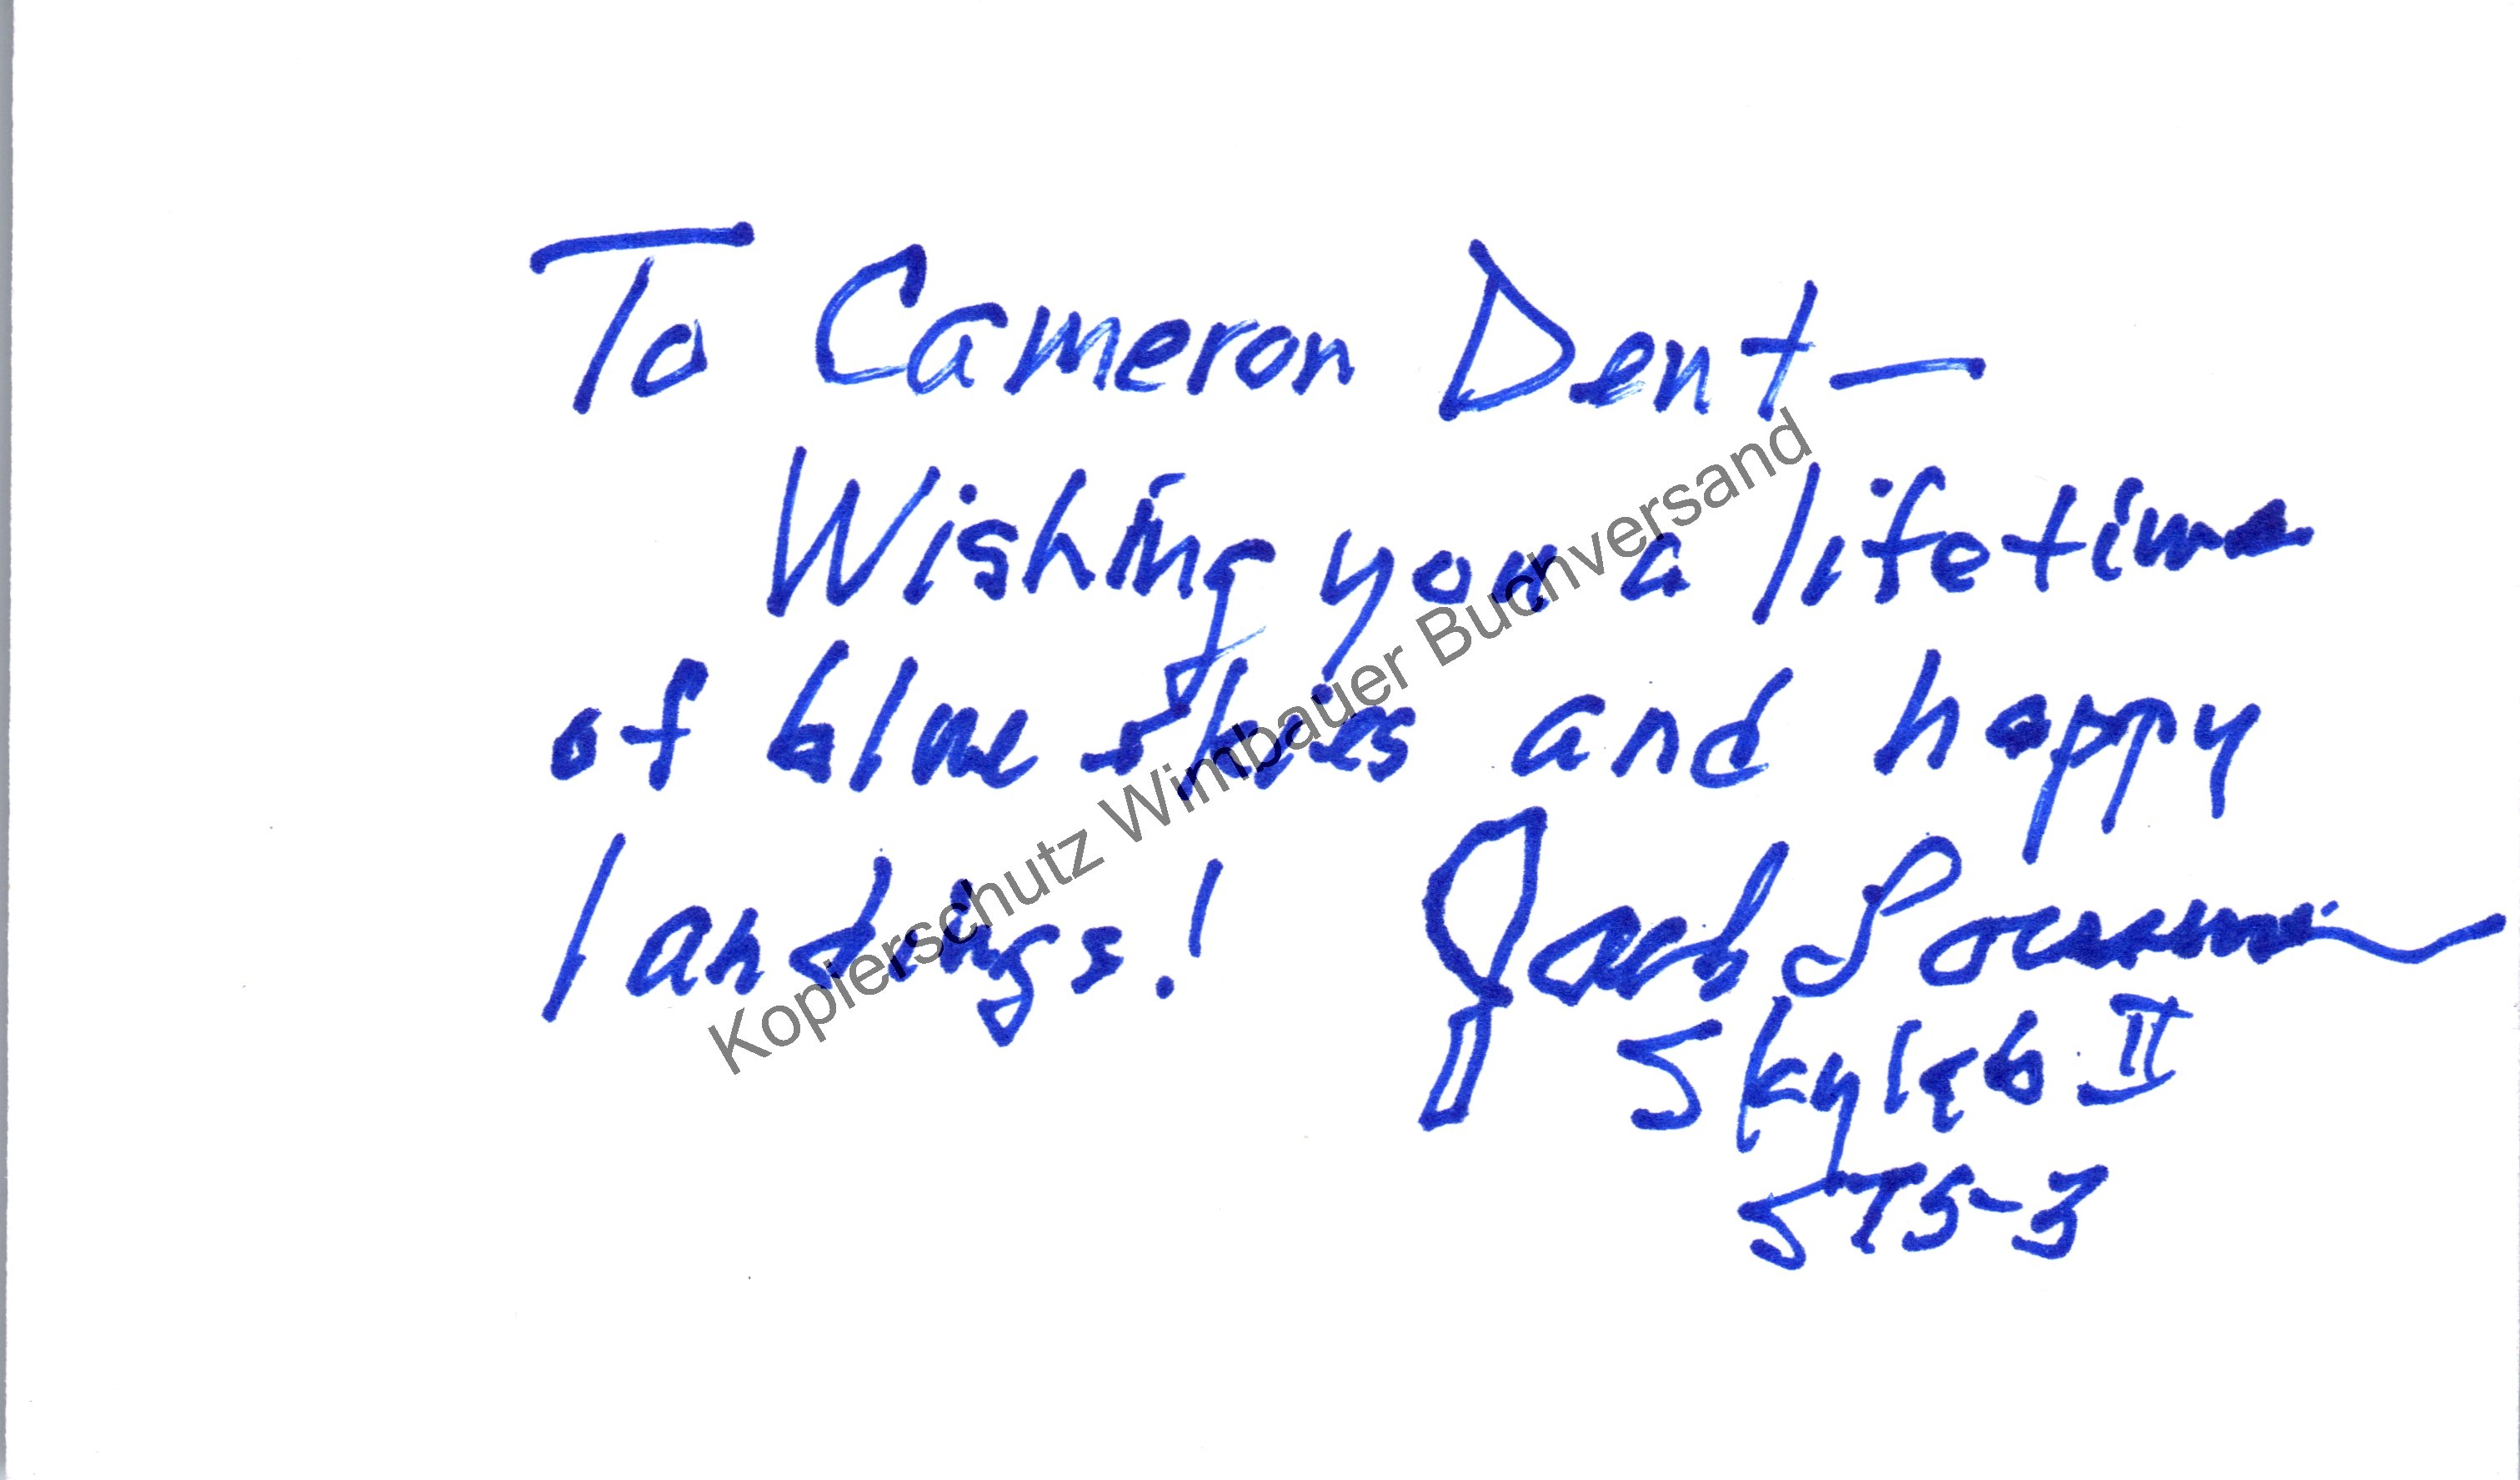 To Cameron Dent—
Wishing you a lifetime
of blue skies and happy
landings! Jack Lousma
Skylab II
STS-3
Kopierschutz Wimbauer Buchversand